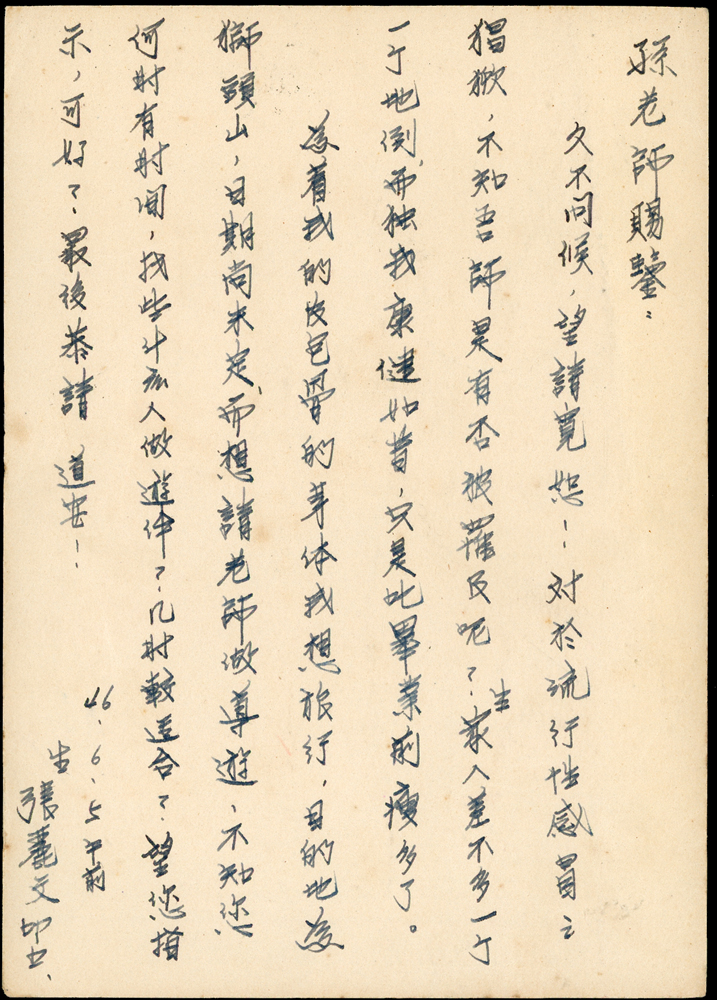 孫老師賜鑒：
久不问候，望請寬恕！对於流行性感冒之
猖獗，不知吾師是有否被罹及呢？生家人差不多一个
一个地倒，而独我康健如昔，只是比畢業前瘦多了。
為着我的皮包骨的身体我想旅行，目的地為
獅頭山，日期尚未定，而想請老師做導遊，不知您
何时有时间，找些什么人做遊伴？几时較适合？望您指
示，可好？最後恭請　道安！
46.6.5午前
生 張麗文叩上、